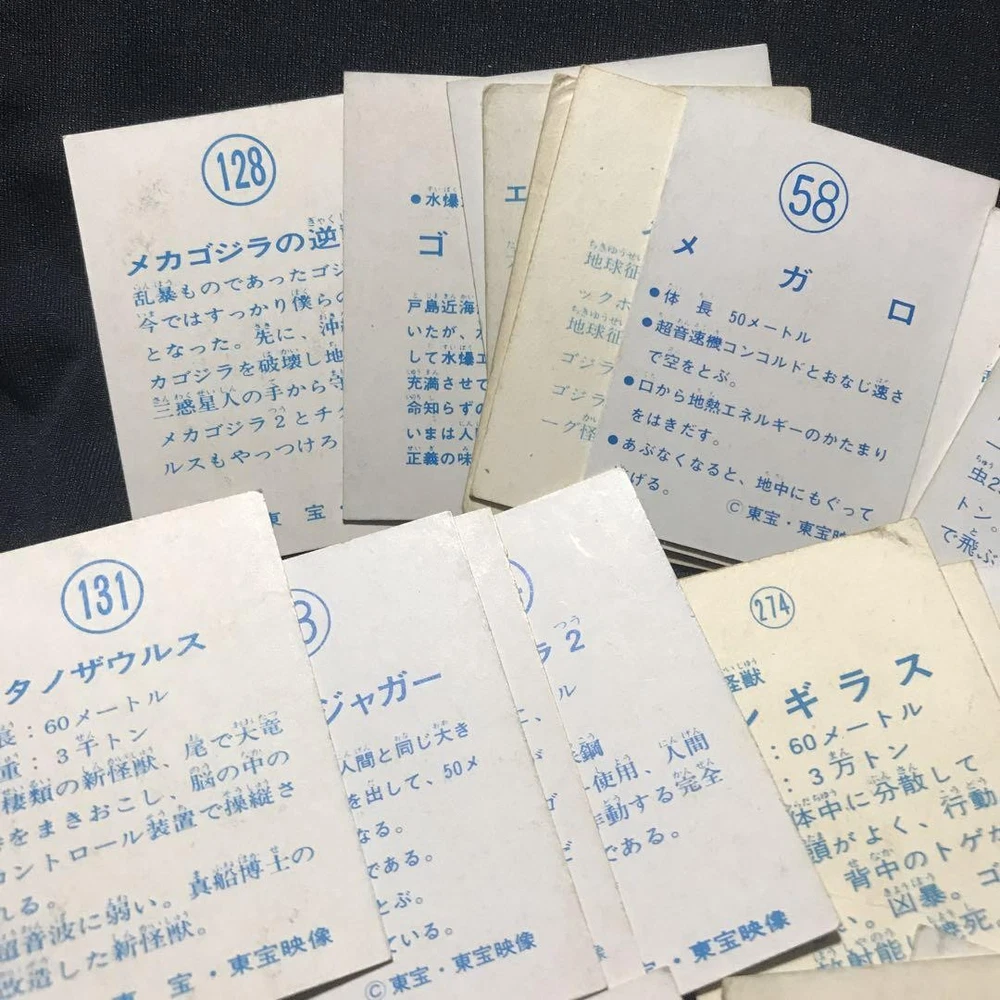 128
メカゴジラの逆
乱暴ものであったゴジ
今ではすっかり僕らの
となった。先に、沖縄
カゴジラを破壊し地
三惑星人の手から守
メカゴジラ2とチタ
ルスもやっつけろ
東宝
●水爆
ゴ
戸島近海
いたが、
して水爆エ
充満させて
命知らずの
いまは人間
正義の味
エ
地球征
ックホ
地球征
ゴジラ
ゴジラ
ーグ怪
58
メガロ
●体長 50メートル
●超音速機コンコルドとおなじ速さ
で空をとぶ。
●口から地熱エネルギーのかたまり
をはきだす。
●あぶなくなると、地中にもぐって
げる。
©東宝・東宝映
虫2
トン。
で飛ぶ
131
タノザウルス
長：60メートル
重：3千トン
棲類の新怪獣、尾で大竜
をまきおこし、脳の中の
コントロール装置で操縦さ
れる。
超音波に弱い。真船博士の
改造した新怪獣。
宝・東宝映像
3
ジャガー
人間と同じ大き
を出して、50メ
なる。
である。
とぶ。
ている。
©東宝・東宝映像
ラ2
ル
鋼
使用、人間
動する完全
である。
・東宝映像
274
怪獣
ンギラス
：60メートル
：3万トン
体中に分散して
頭がよく、行動
背中のトゲが
い。凶暴。ゴ
放射能